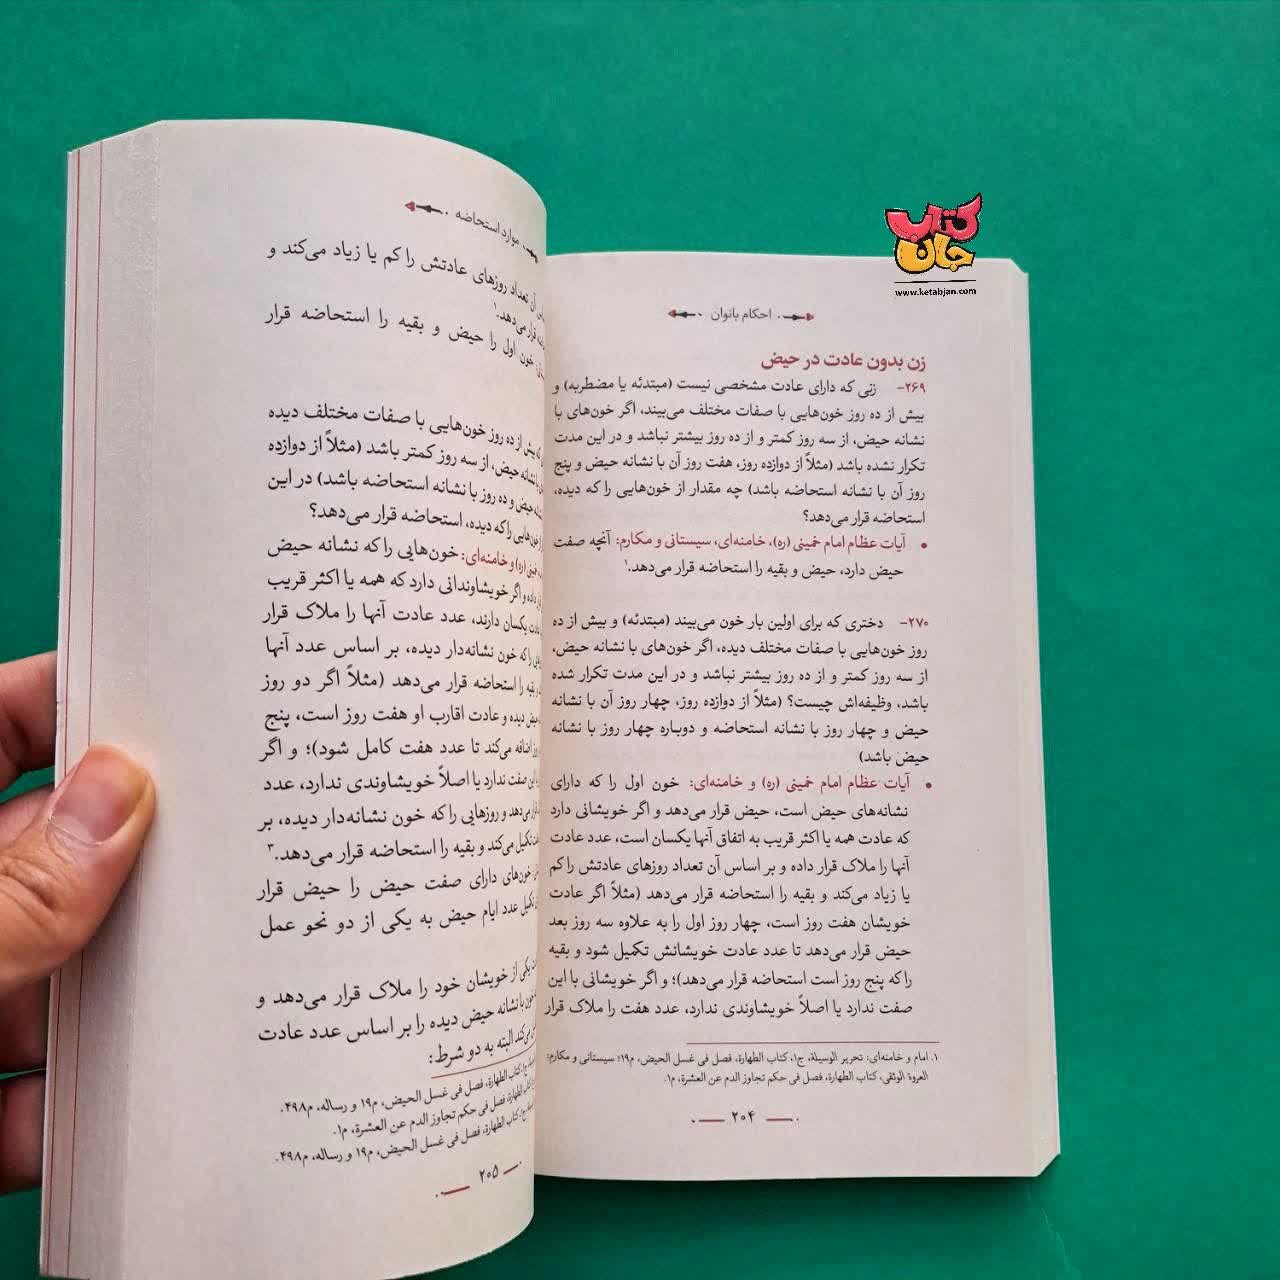 کتاب جان
www.ketabjan.com
احکام بانوان
زن بدون عادت در حیض
۲۶۹- زنی که دارای عادت مشخصی نیست (مبتدئه یا مضطربه) و
بیش از ده روز خون‌هایی با صفات مختلف می‌بیند، اگر خون‌های با
نشانه حیض، از سه روز کمتر و از ده روز بیشتر نباشد و در این مدت
تکرار نشده باشد (مثلاً از دوازده روز، هفت روز آن با نشانه حیض و پنج
روز آن با نشانه استحاضه باشد) چه مقدار از خون‌هایی را که دیده،
استحاضه قرار می‌دهد؟
• آیات عظام امام خمینی (ره)، خامنه‌ای، سیستانی و مکارم: آنچه صفت
حیض دارد، حیض و بقیه را استحاضه قرار می‌دهد.۱
۲۷۰- دختری که برای اولین بار خون می‌بیند (مبتدئه) و بیش از ده
روز خون‌هایی با صفات مختلف دیده، اگر خون‌های با نشانه حیض،
از سه روز کمتر و از ده روز بیشتر نباشد و در این مدت تکرار شده
باشد، وظیفه‌اش چیست؟ (مثلاً از دوازده روز، چهار روز آن با نشانه
حیض و چهار روز با نشانه استحاضه و دوباره چهار روز با نشانه
حیض باشد)
• آیات عظام امام خمینی (ره) و خامنه‌ای: خون اول را که دارای
نشانه‌های حیض است، حیض قرار می‌دهد و اگر خویشانی دارد
که عادت همه یا اکثر قریب به اتفاق آنها یکسان است، عدد عادت
آنها را ملاک قرار داده و بر اساس آن تعداد روزهای عادتش را کم
یا زیاد می‌کند و بقیه را استحاضه قرار می‌دهد (مثلاً اگر عادت
خویشان هفت روز است، چهار روز اول را به علاوه سه روز بعد
حیض قرار می‌دهد تا عدد عادت خویشانش تکمیل شود و بقیه
را که پنج روز است استحاضه قرار می‌دهد)؛ و اگر خویشانی با این
صفت ندارد یا اصلاً خویشاوندی ندارد، عدد هفت را ملاک قرار
۱. امام و خامنه‌ای: تحریر الوسیلة، ج۱، کتاب الطهارة، فصل فی غسل الحیض، م۱۹؛ سیستانی و مکارم:
العروة الوثقی، کتاب الطهارة، فصل فی حکم تجاوز الدم عن العشرة، م۱.
۲۰۴
موارد استحاضه
آن تعداد روزهای عادتش را کم یا زیاد می‌کند و
قرار می‌دهد.۱
خون اول را حیض و بقیه را استحاضه قرار
بیش از ده روز خون‌هایی با صفات مختلف دیده
نشانه حیض، از سه روز کمتر باشد (مثلاً از دوازده
حیض و ده روز با نشانه استحاضه باشد) در این
خون‌هایی را که دیده، استحاضه قرار می‌دهد؟
(ره) و خامنه‌ای: خون‌هایی را که نشانه حیض
داده و اگر خویشاوندانی دارد که همه یا اکثر قریب
عادت یکسان دارند، عدد عادت آنها را ملاک قرار
را که خون نشانه‌دار دیده، بر اساس عدد آنها
و بقیه را استحاضه قرار می‌دهد (مثلاً اگر دو روز
حیض دیده و عادت اقارب او هفت روز است، پنج
اضافه می‌کند تا عدد هفت کامل شود)؛ و اگر
این صفت ندارد یا اصلاً خویشاوندی ندارد، عدد
می‌دهد و روزهایی را که خون نشانه‌دار دیده، بر
تکمیل می‌کند و بقیه را استحاضه قرار می‌دهد.۳
خون‌های دارای صفت حیض را حیض قرار
تکمیل عدد ایام حیض به یکی از دو نحو عمل
یکی از خویشان خود را ملاک قرار می‌دهد و
با نشانه حیض دیده را بر اساس عدد عادت
می‌کند البته به دو شرط:
کتاب الطهارة، فصل فی غسل الحیض، م۱۹ و رساله، م۴۹۸.
الطهارة، فصل فی حکم تجاوز الدم عن العشرة، م۱.
کتاب الطهارة، فصل فی غسل الحیض، م۱۹ و رساله، م۴۹۸.
۲۰۵